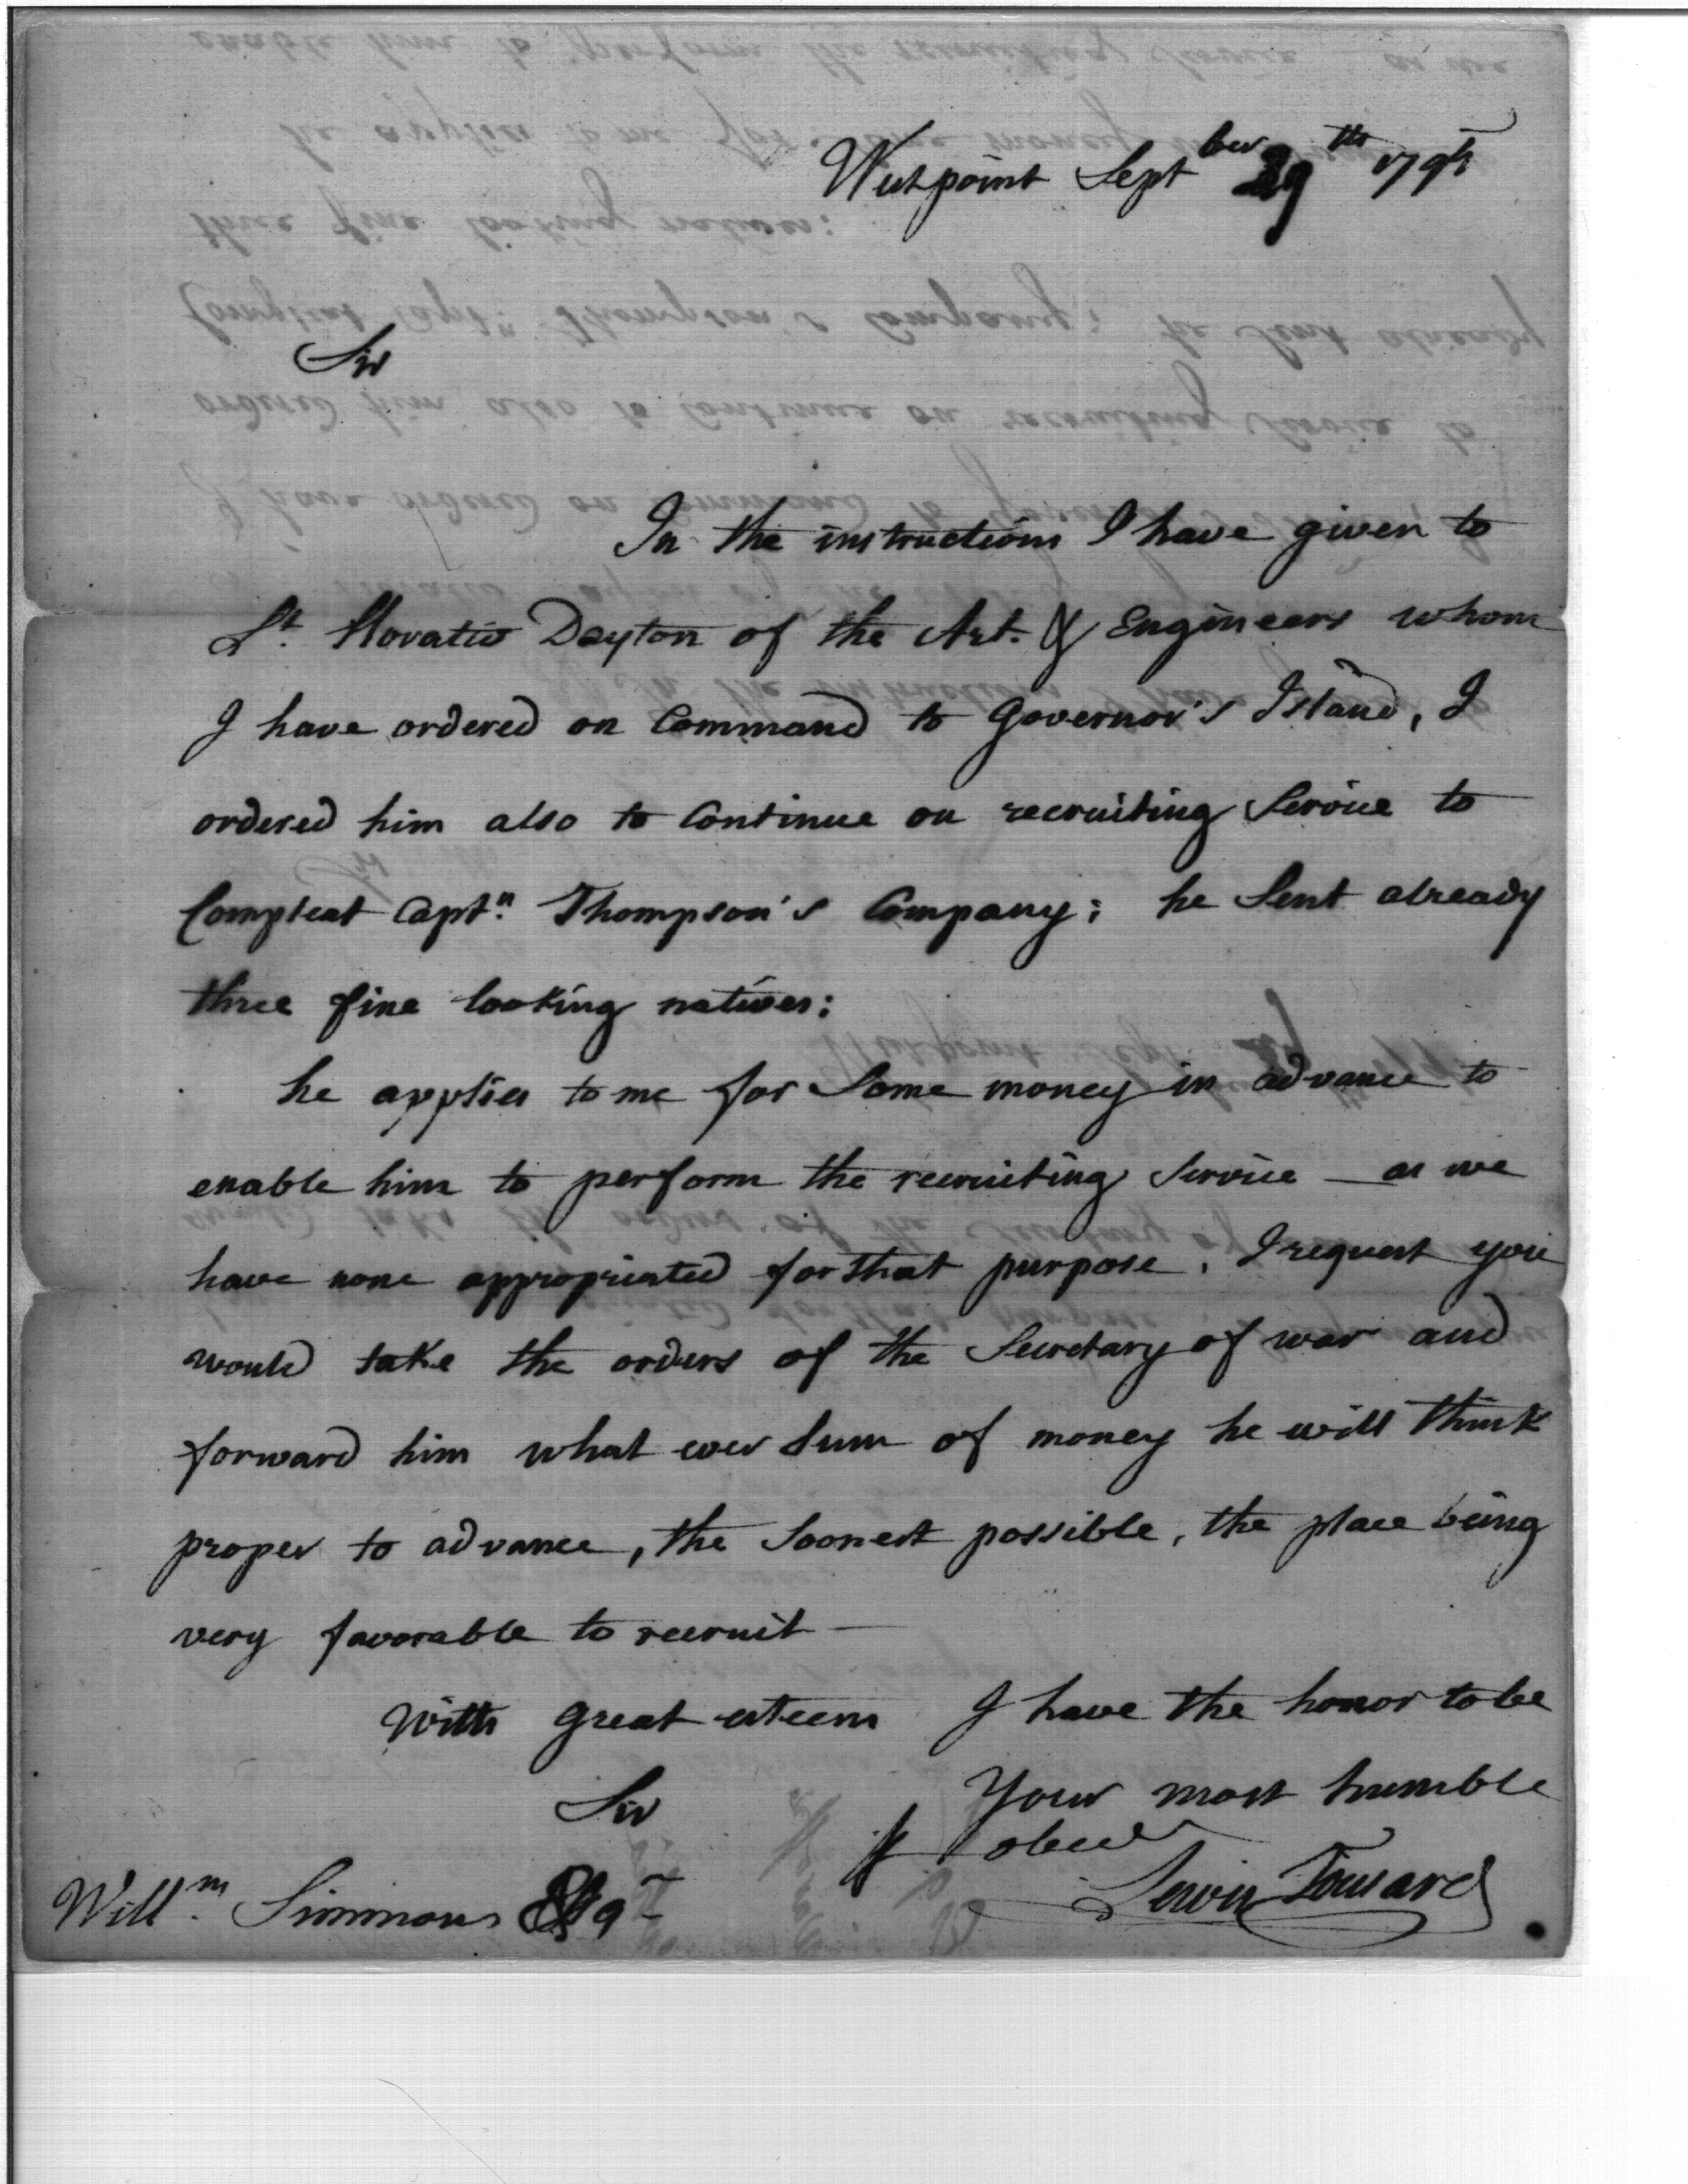 Westpoint Septber 29th 179
Sir
In the instructions I have given to
Lt. Horatio Dayton of the Art. & Engineers whom
I have ordered on Command to Governor's Island, I
ordered him also to Continue on recruiting Service to
Compleat Captn. Thompson's Company; he Sent already
three fine looking natives;
he applies to me for Some money in advance to
enable him to perform the recruiting Service — as we
have none appropriated for that purpose. I request you
would take the orders of the Secretary of war and
forward him what ever Sum of money he will think
proper to advance, the Soonest possible, the place being
very favorable to recruit —
With great esteem I have the honor to be
Sir Your most humble
& obed
Willm. Simmons Esqr Lewis Tousard